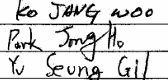 KO JANG WOO
Park Jong Ho
Yu Seung Gil